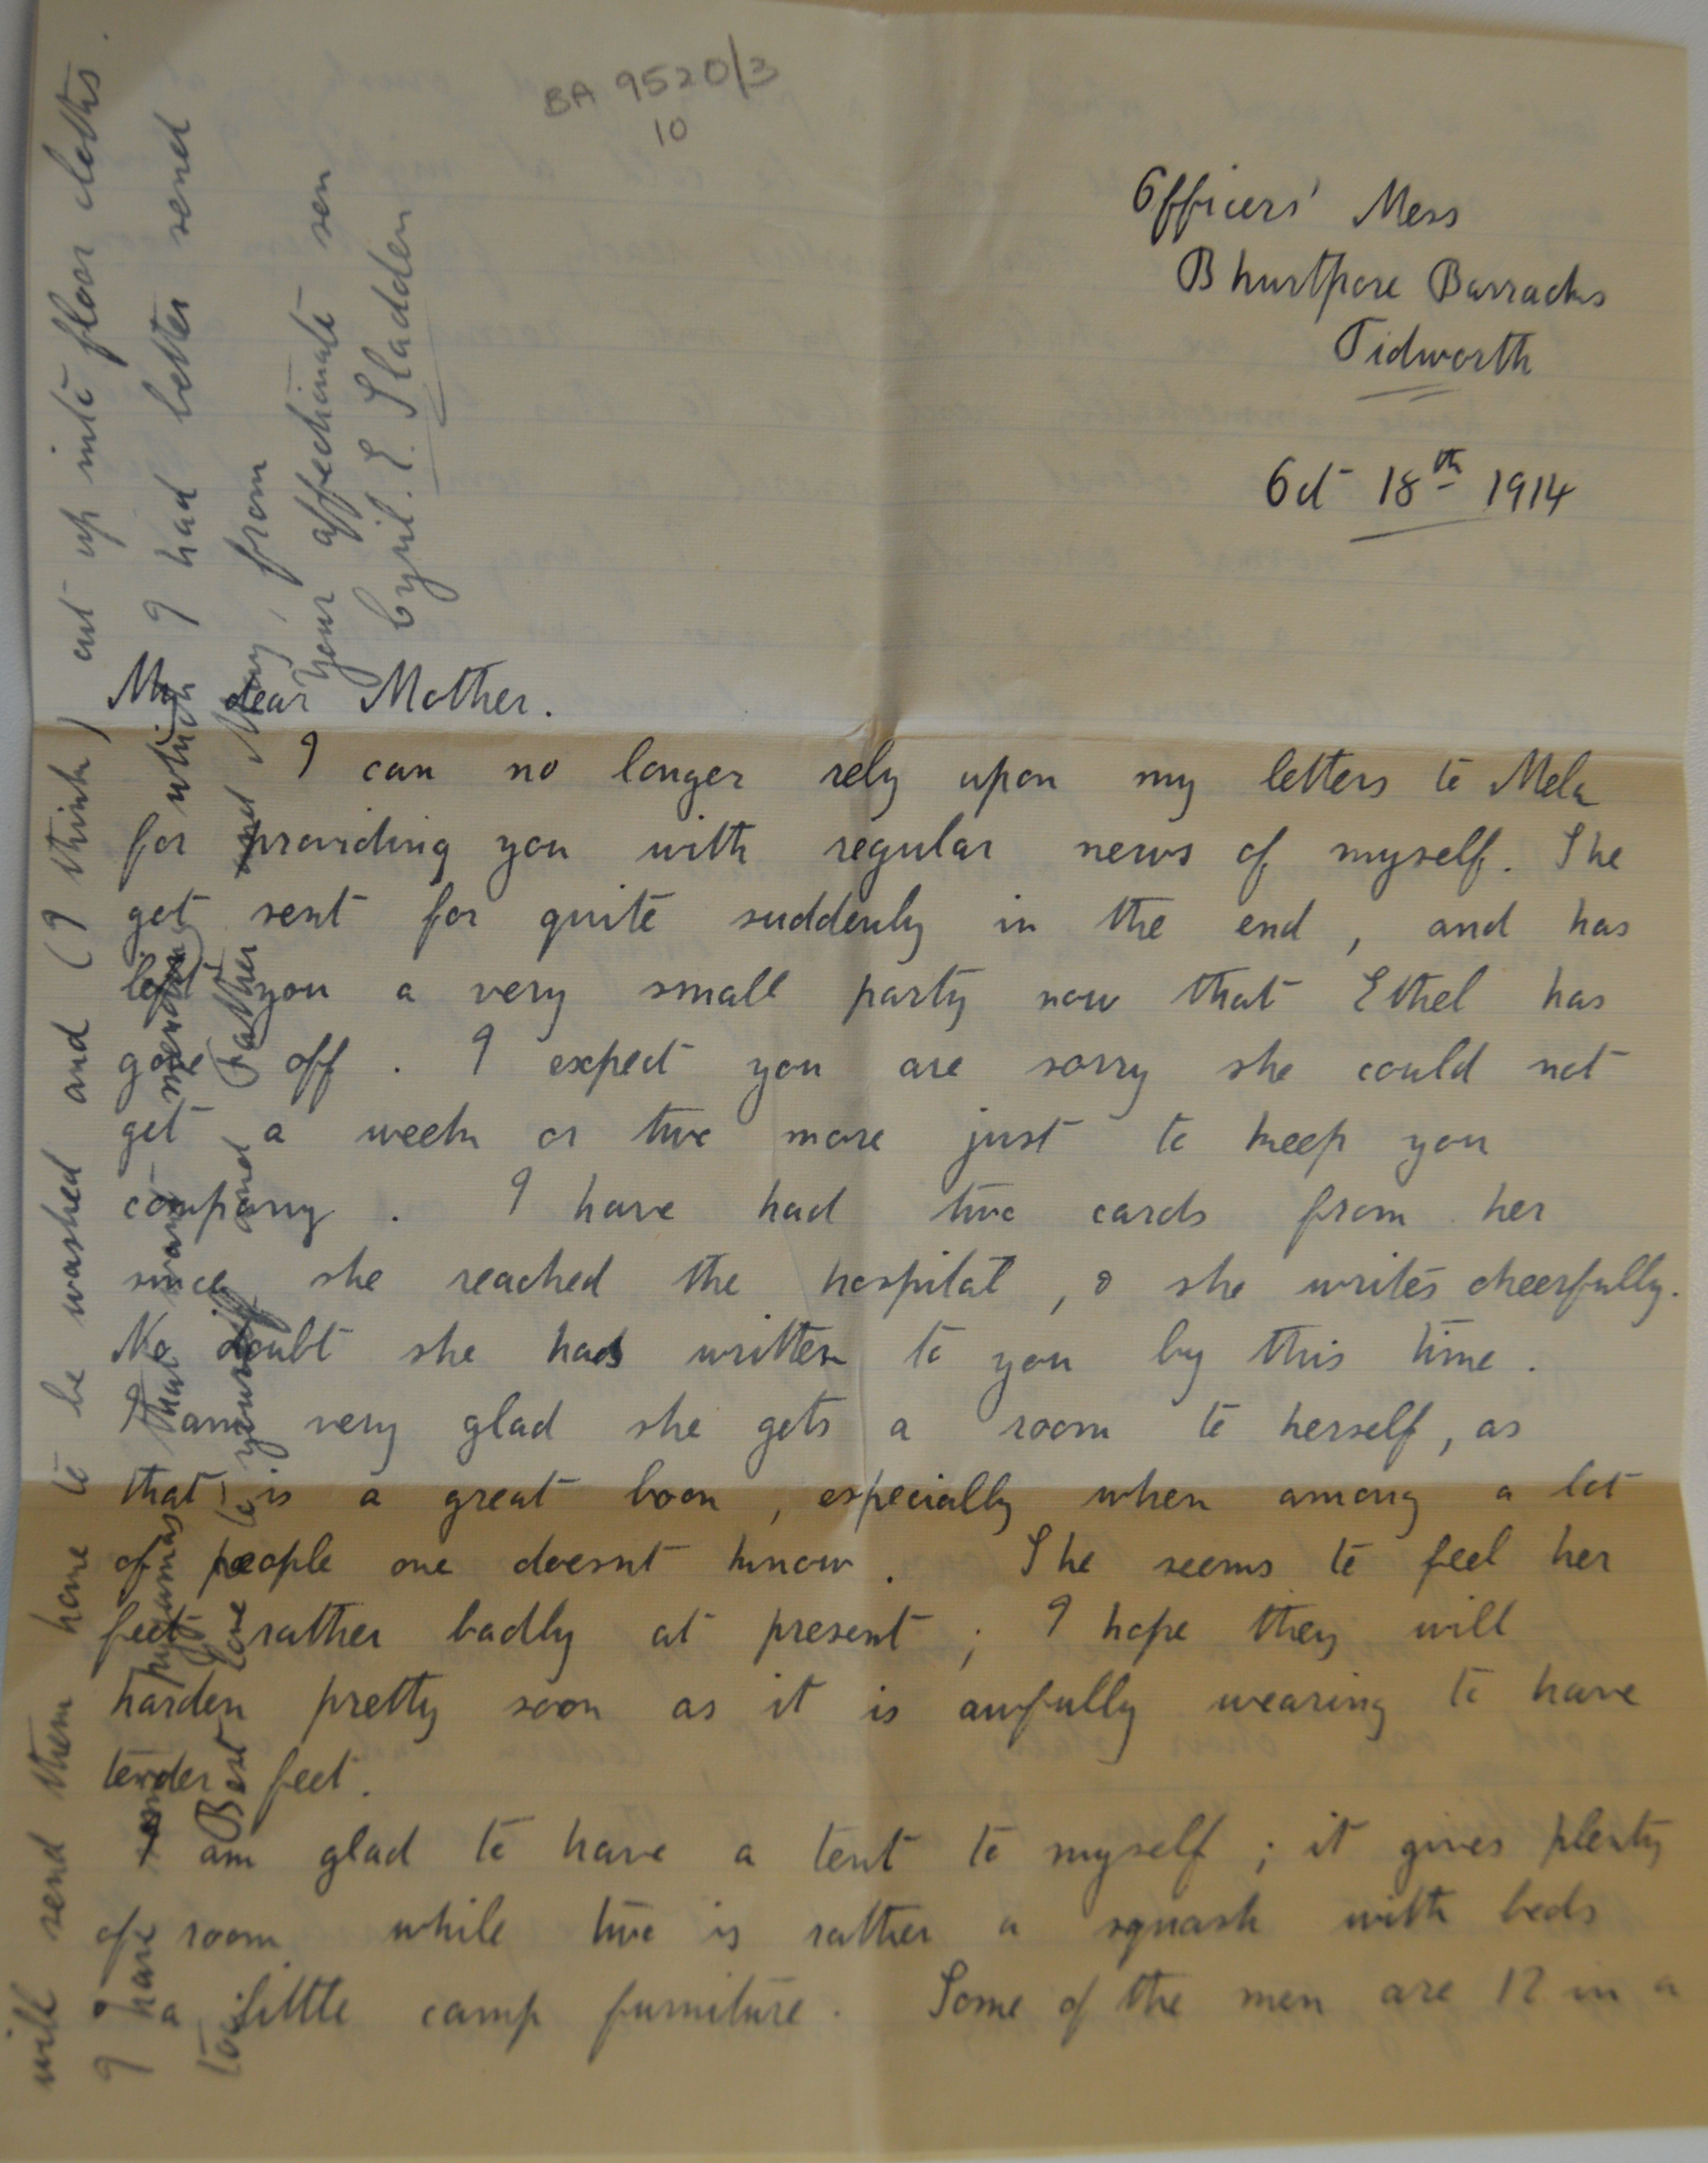 BA 9520/3
10
Officers' Mess
Bhurtpore Barracks
Tidworth
Oct 18th 1914
My dear Mother.
I can no longer rely upon my letters to Mela
for providing you with regular news of myself. She
got sent for quite suddenly in the end, and has
left you a very small party now that Ethel has
gone off. I expect you are sorry she could not
get a week or two more just to keep you
company. I have had two cards from her
since she reached the hospital, & she writes cheerfully.
No doubt she has written to you by this time.
I am very glad she gets a room to herself, as
that is a great boon, especially when among a lot
of people one doesnt know. She seems to feel her
feet rather badly at present; I hope they will
harden pretty soon as it is awfully wearing to have
tender feet.
I am glad to have a tent to myself; it gives plenty
of room while two is rather a squash with beds
& a little camp furniture. Some of the men are 12 in a
will send them home to be washed and (I think) cut up into floor cloths.
I have some pyjamas that want mending which I had better send
too. Best love to yourself and Father and May, from
your affectionate son
Cyril. E. Sladden